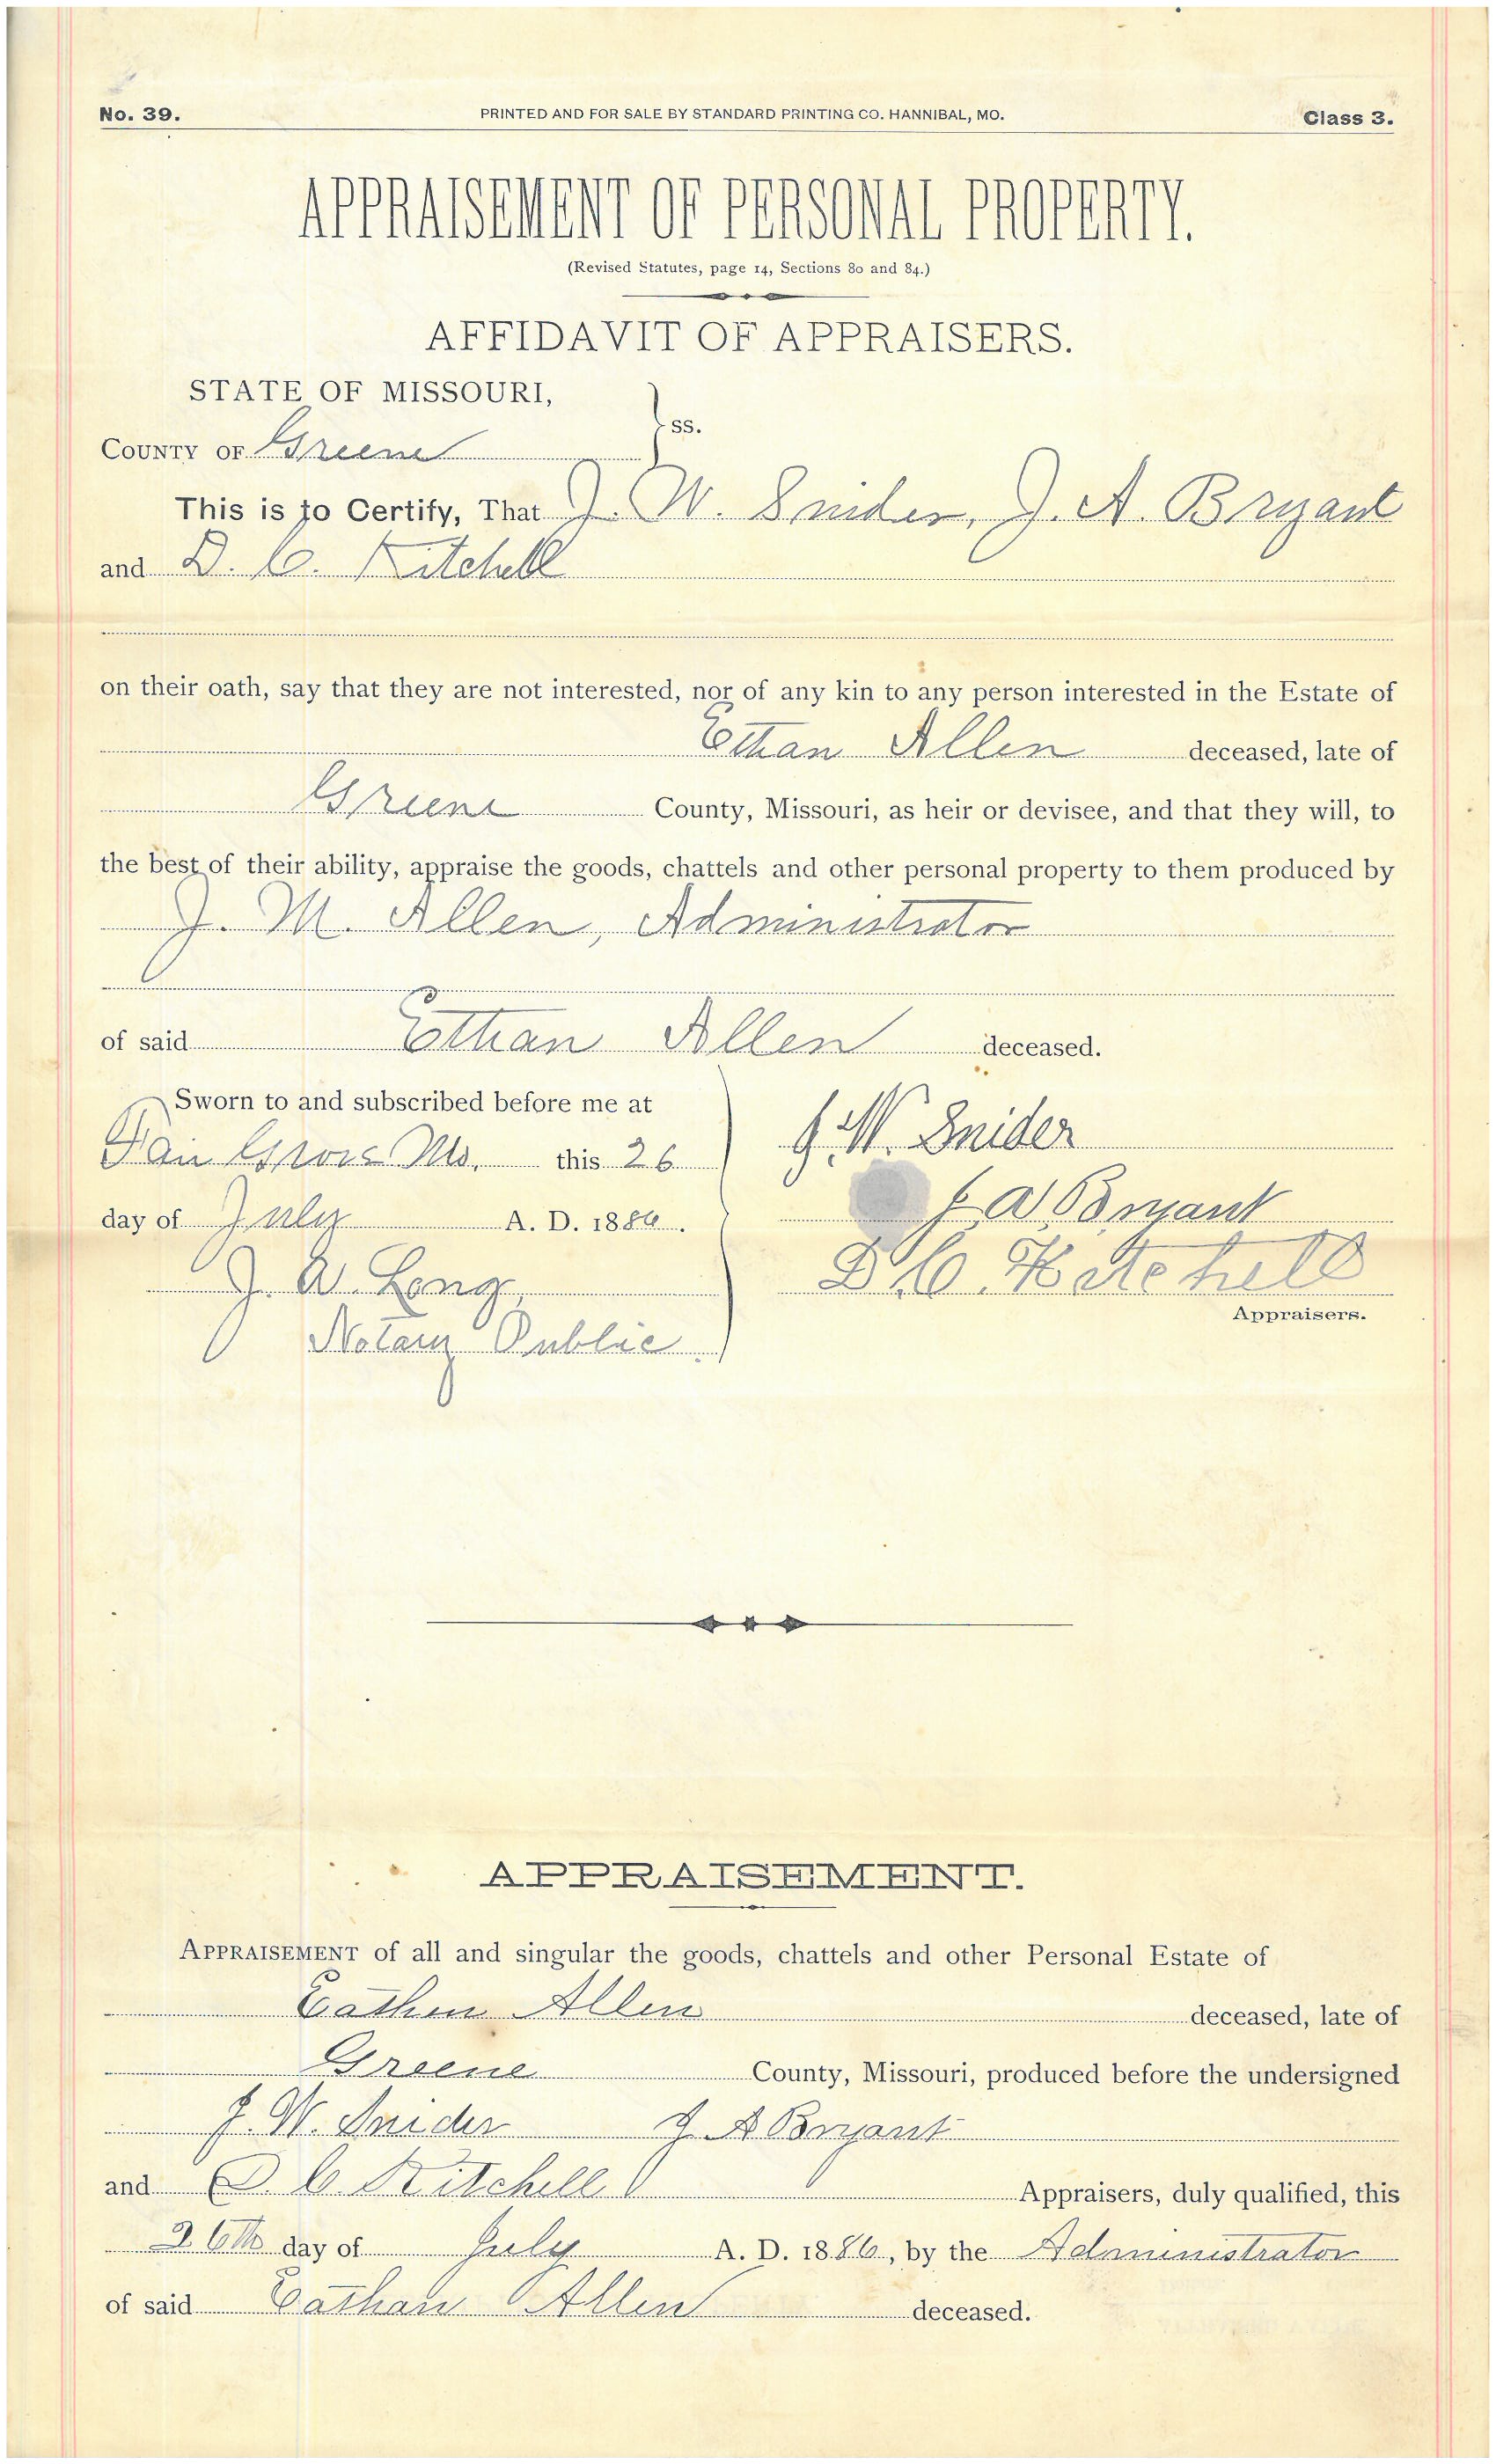 No. 39. PRINTED AND FOR SALE BY STANDARD PRINTING CO. HANNIBAL, MO. Class 3.
APPRAISEMENT OF PERSONAL PROPERTY.
(Revised Statutes, page 14, Sections 80 and 84.)
AFFIDAVIT OF APPRAISERS.
STATE OF MISSOURI,
ss.
COUNTY OF Greene
This is to Certify, That J. W. Snider, J. A. Bryant
and D. C. Kitchell
on their oath, say that they are not interested, nor of any kin to any person interested in the Estate of
Ethan Allen deceased, late of
Greene County, Missouri, as heir or devisee, and that they will, to
the best of their ability, appraise the goods, chattels and other personal property to them produced by
J. M. Allen, Administrator
of said Ethan Allen deceased.
Sworn to and subscribed before me at
Fair Grove Mo. this 26
day of July A. D. 1886.
J. W. Long,
Notary Public.
J. W. Snider
J. A. Bryant
D. C. Kitchell
Appraisers.
APPRAISEMENT.
APPRAISEMENT of all and singular the goods, chattels and other Personal Estate of
Eathen Allen deceased, late of
Greene County, Missouri, produced before the undersigned
J. W. Snider J A Bryant
and D. C. Kitchell Appraisers, duly qualified, this
26th day of July A. D. 1886, by the Administrator
of said Eathan Allen deceased.